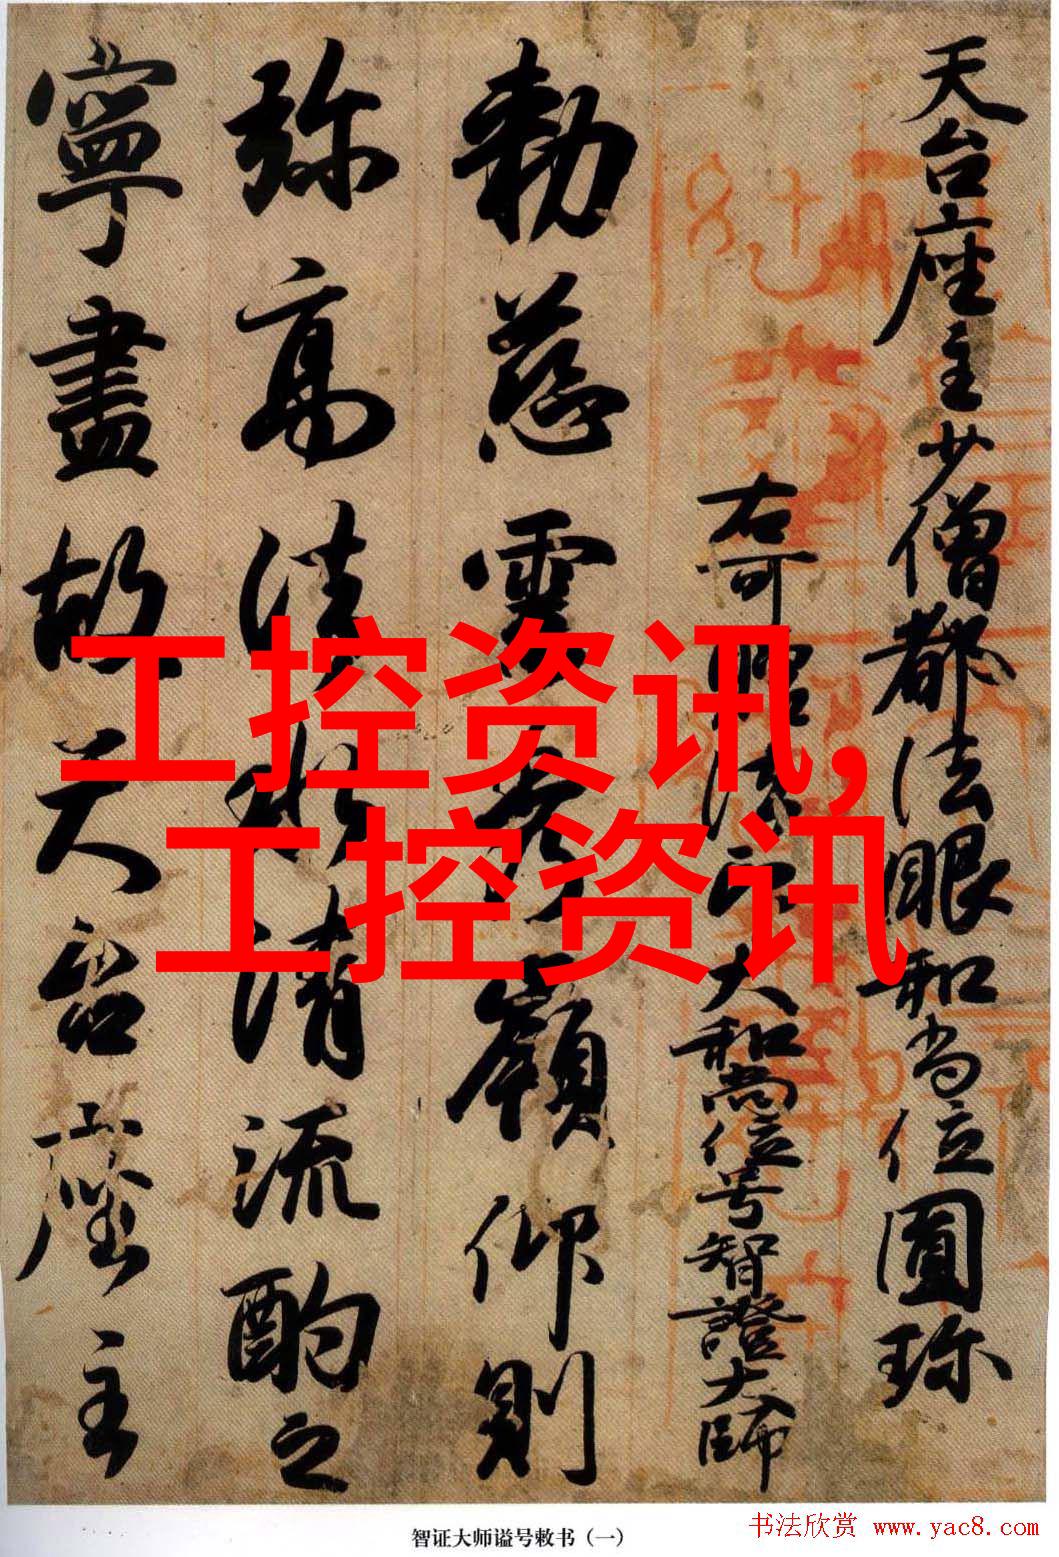 天台座主少僧都法眼和尚位圓珎
右可贈法印大和尚位号智證大師
勅慈雲秀嶺仰則
弥高法水清流酌之
寧盡故天台座主
工控资讯,
工控资讯
智证大师谥号敕书（一）
书法欣赏 www.yac8.com